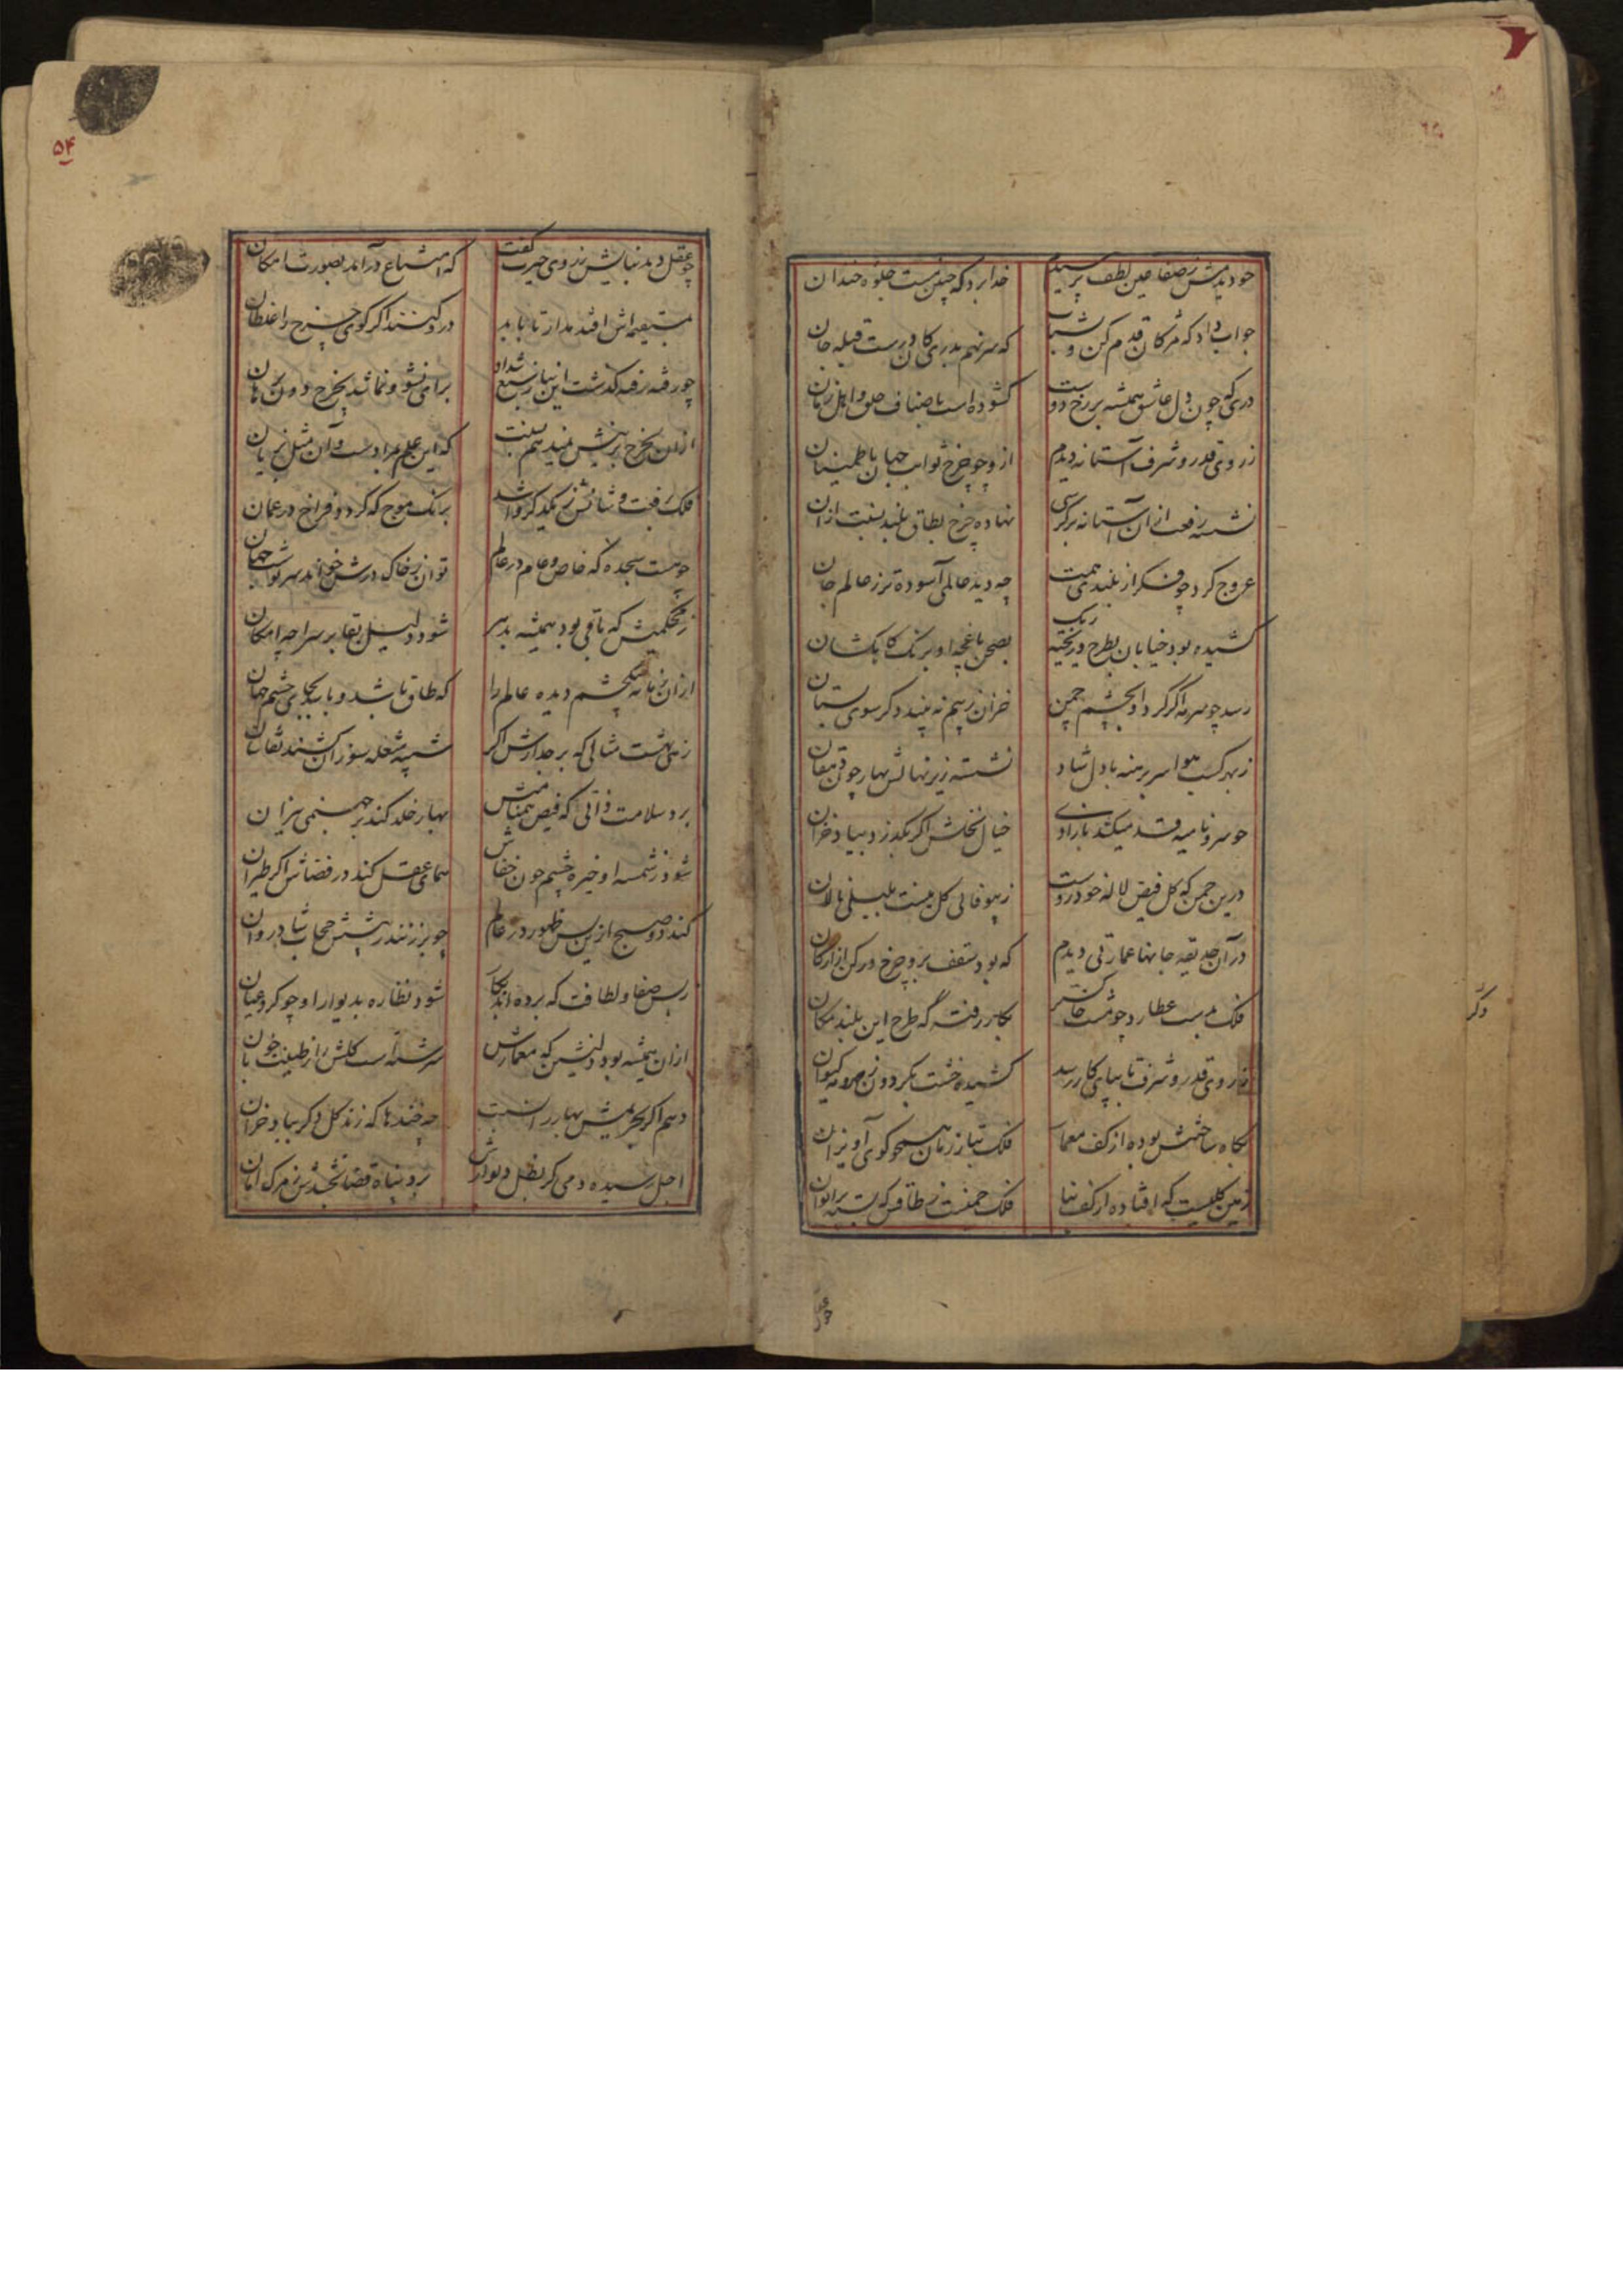 چو دیدمش ز صفا عین لطف پرسیدم خدا برد که چنین مست جلوه خندان
جواب داد که مژکان قدم کن و بشتاب که سر نهم بدری کان درست قبله جان
دری که چون دل عاشق همیشه بر رخ دوست کشوده است باصناف خلق و اهل زمان
ز روی قدر و شرف آستانه دیدم از و چو چرخ ثوابت جهان باطمینان
نشسته رفعت ازان آستانه بر کرسی نهاده چرخ بطاق بلند نسبت ازان
عروج کرد چو فکر از بلندی همت چه دید عالمی آسوده تر ز عالم جان
کشیده بود خیابان بطرح ریخته رنک بصحن باغچه او برنک کاهکشان
رسد چو سرمه اکر کرد او بچشم چمن خزان ز بیم نه بیند دکر سوی بستان
ز بهر کسب هوا سر برهنه با دل شاد نشسته زیر نهالش بهار چون دهقان
چو سرو نامیه قد میکشد بازادی خیال نخلش اکر بکذرد بیاد خزان
درین چمن که کل فیض لاله خودروست ز بیوفائی کل نیست بلبلی نالان
در آن حدیقه جانها عمارتی دیدم که بود سقف بروج چرخ و رکن از ارکان
فلک بدست عطارد چو مشت خاکستر بکار رفت که طرح این بلند مکان
ز روی قدر و شرف تا بپای کار رسد کشیده خشت بکردون ز مه کیوان
بکاه ساختنش بوده از کف معمار فلک بتار زمان همچو کوی آویزان
زمین کلیست که افتاده از کف بنا فلک جفتی ز طاقی که بسته بر ایوان
چو عقل
۵۴
چو عقل دید بنایش ز روی حیرت کفت که امتناع در آمد بصورت امکان
بتیعه اش افتد مدار تا بابد در و کنند اکر کوی چرخ را غلطان
چو رفته رفته کذشت این بنا ز سبع شداد برای نشو و نما شد بچرخ دون برهان
ازان بچرخ برینش نمیدهم نسبت که این علم بمراد ست و آن مثل بزبان
فلک ز رفعت و شانش ز یکدیکر وا شد برنک موج که کردد فراخ در عمان
چو هست سجده که خاص و عام در عالم توان ز خاک درش خواند سر نوشت جهان
ز محکمیش که باقی بود همیشه بدهر شود دلیل بقا بر سراچه امکان
ازان زمانه بیکچشم دیده عالم را که طاق باشد و باشد بجای چشم جهان
زهی بهشت مثالی که بر جدارش اکر شبیه شعله سوزان کشند نقاشان
برد سلامت ذاتی که فیض همنامش بهار خلد کند بر جهنمی نیران
شود ز شمسه او خیره چشم چون خفاش همای عقل کند در فضاش اکر طیران
کند دو صبح ازین پس ظهور در عالم چو بر زنند ز پیشش حجاب شادروان
ز بس صفا و لطافت که برده اند بکار شود نظاره بدیوار او چو کرد عیان
ازان همیشه بود دلنشین که معمارش سرشته است کلش را ز طینت خوبان
دهم اکر بحریمش بهار را نسبت چه خندها که زند کل دکر بیاد خزان
اجل رسیده دمی کر بظل دیوارش برد پناه قضا بخشدش ز مرک امان